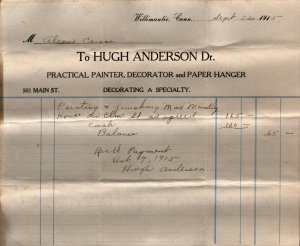 Willimantic, Conn., Sept 22 1915
M Alexis Caisse
To HUGH ANDERSON Dr.
PRACTICAL PAINTER, DECORATOR and PAPER HANGER
501 MAIN ST. DECORATING A SPECIALTY.
Painting & finishing
House on St 165 —
Cash 100 —
Balance 65 —
Rec'd Payment
Oct 7, 1915
Hugh Anderson